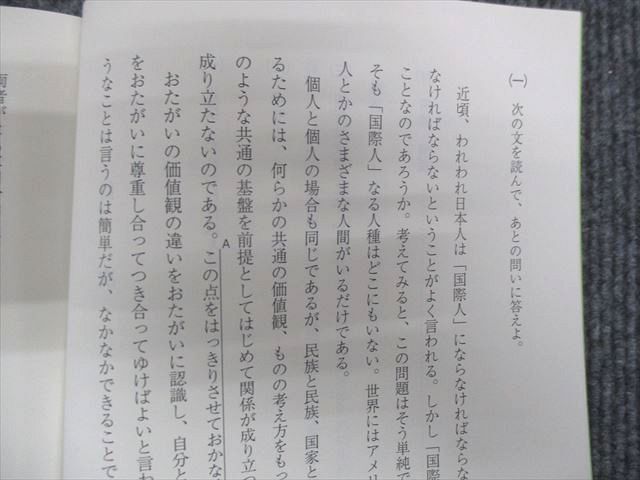 ㈠　次の文を読んで、あとの問いに答えよ。
近頃、われわれ日本人は「国際人」にならなければならな
なければならないということがよく言われる。しかし「国際
ことなのであろうか。考えてみると、この問題はそう単純で
そも「国際人」なる人種はどこにもいない。世界にはアメリ
人とかのさまざまな人間がいるだけである。
個人と個人の場合も同じであるが、民族と民族、国家と
るためには、何らかの共通の価値観、ものの考え方をもっ
のような共通の基盤を前提としてはじめて関係が成り立つ
成り立たないのである。この点をはっきりさせておかな
A
おたがいの価値観の違いをおたがいに認識し、自分と
をおたがいに尊重し合ってつき合ってゆけばよいと言わ
うなことは言うのは簡単だが、なかなかできることで